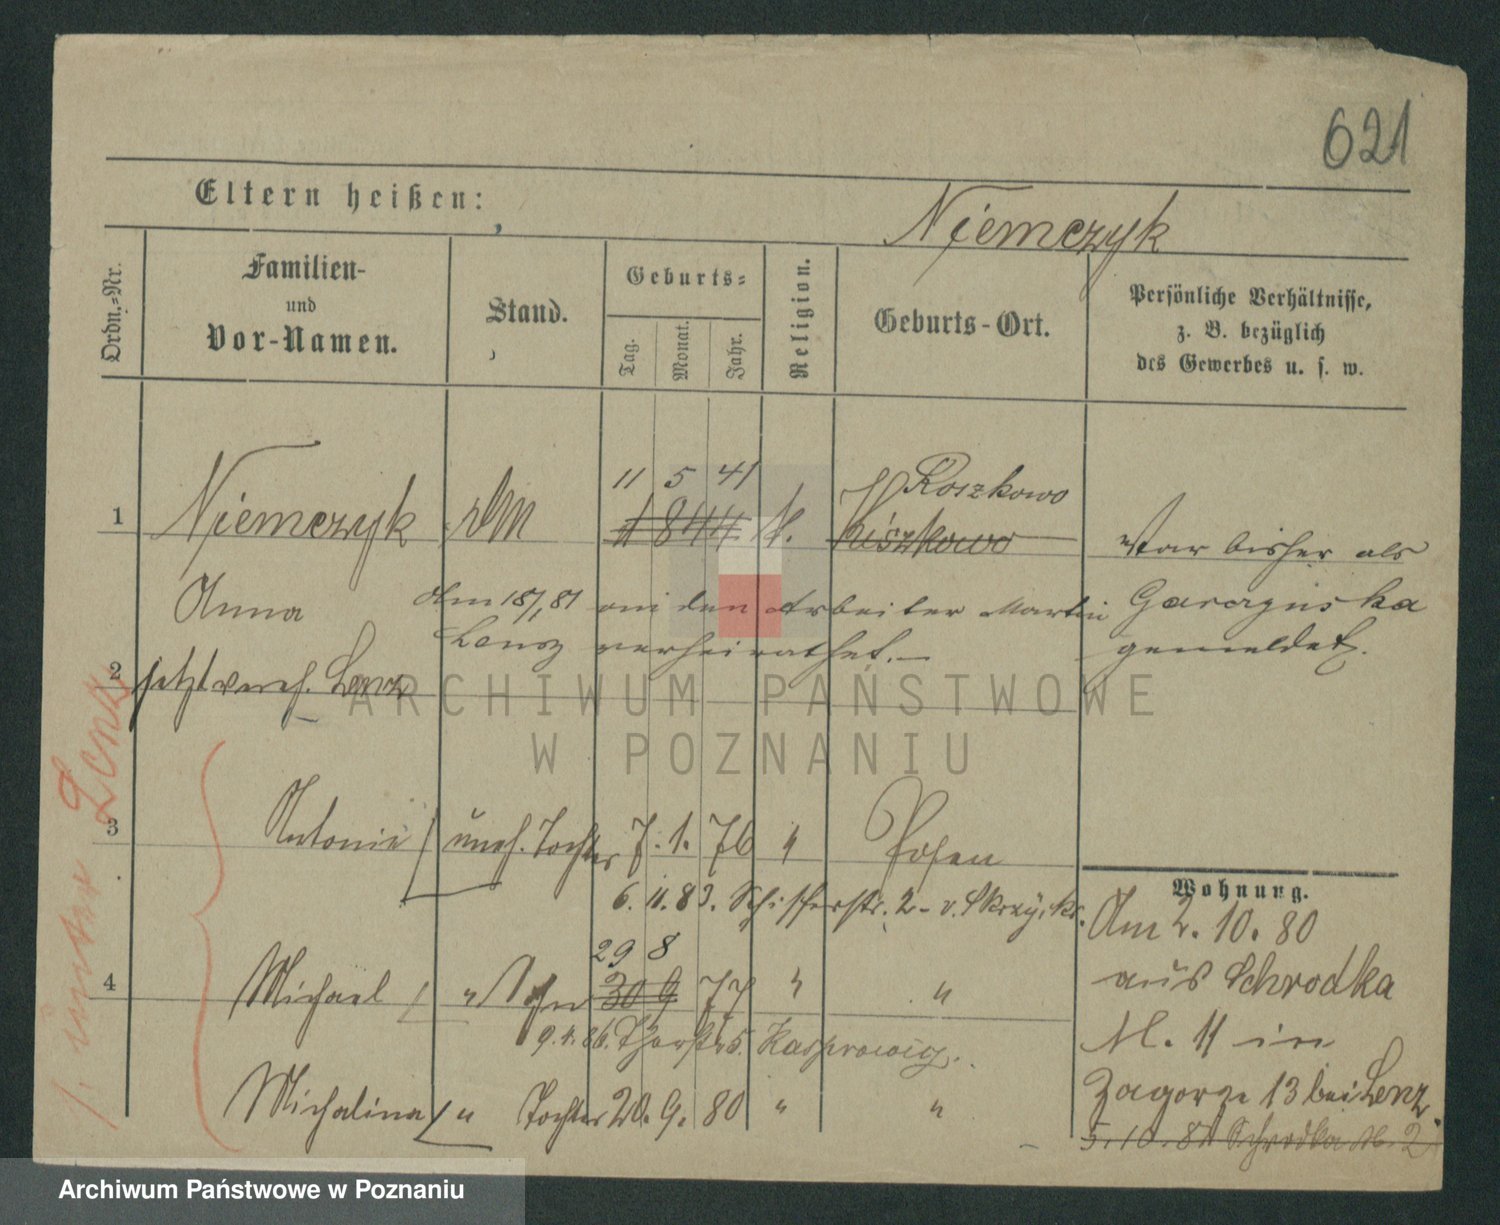 621
Eltern heißen:
Niemczyk
Ordn.-Nr.
Familien-
und
Vor-Namen.
Stand.
Geburts-
Tag. Monat. Jahr.
Religion.
Geburts-Ort.
Persönliche Verhältnisse,
z. B. bezüglich
des Gewerbes u. s. w.
11 5 41 Roszkowo
1 Niemczyk 11 844 k. Kiszkowo war bisher als
Anna Am 18/1, 81 an den Arbeiter Martin Garczynska
Lensz verheirathet. gemeldet.
2 jetzt vereh. Lenz
3 Antonie uneh. Tochter 7. 1. 76 " Posen
Wohnung.
6. 11. 83. Schifferstr. 2 - v.
Am 2. 10. 80
29 8
aus Schrodka
4 Michael " Sohn 30 9 77 " "
N. 11 in
9. 4. 86. Thorstr. 5. Kasprowicz.
Zagorze 13 bei Lenz.
Michalina " Tochter 20. 9. 80 " "
5. 10. 81 Schrodka N. 2
s. unter Lenz
ARCHIWUM PAŃSTWOWE
W POZNANIU
Archiwum Państwowe w Poznaniu